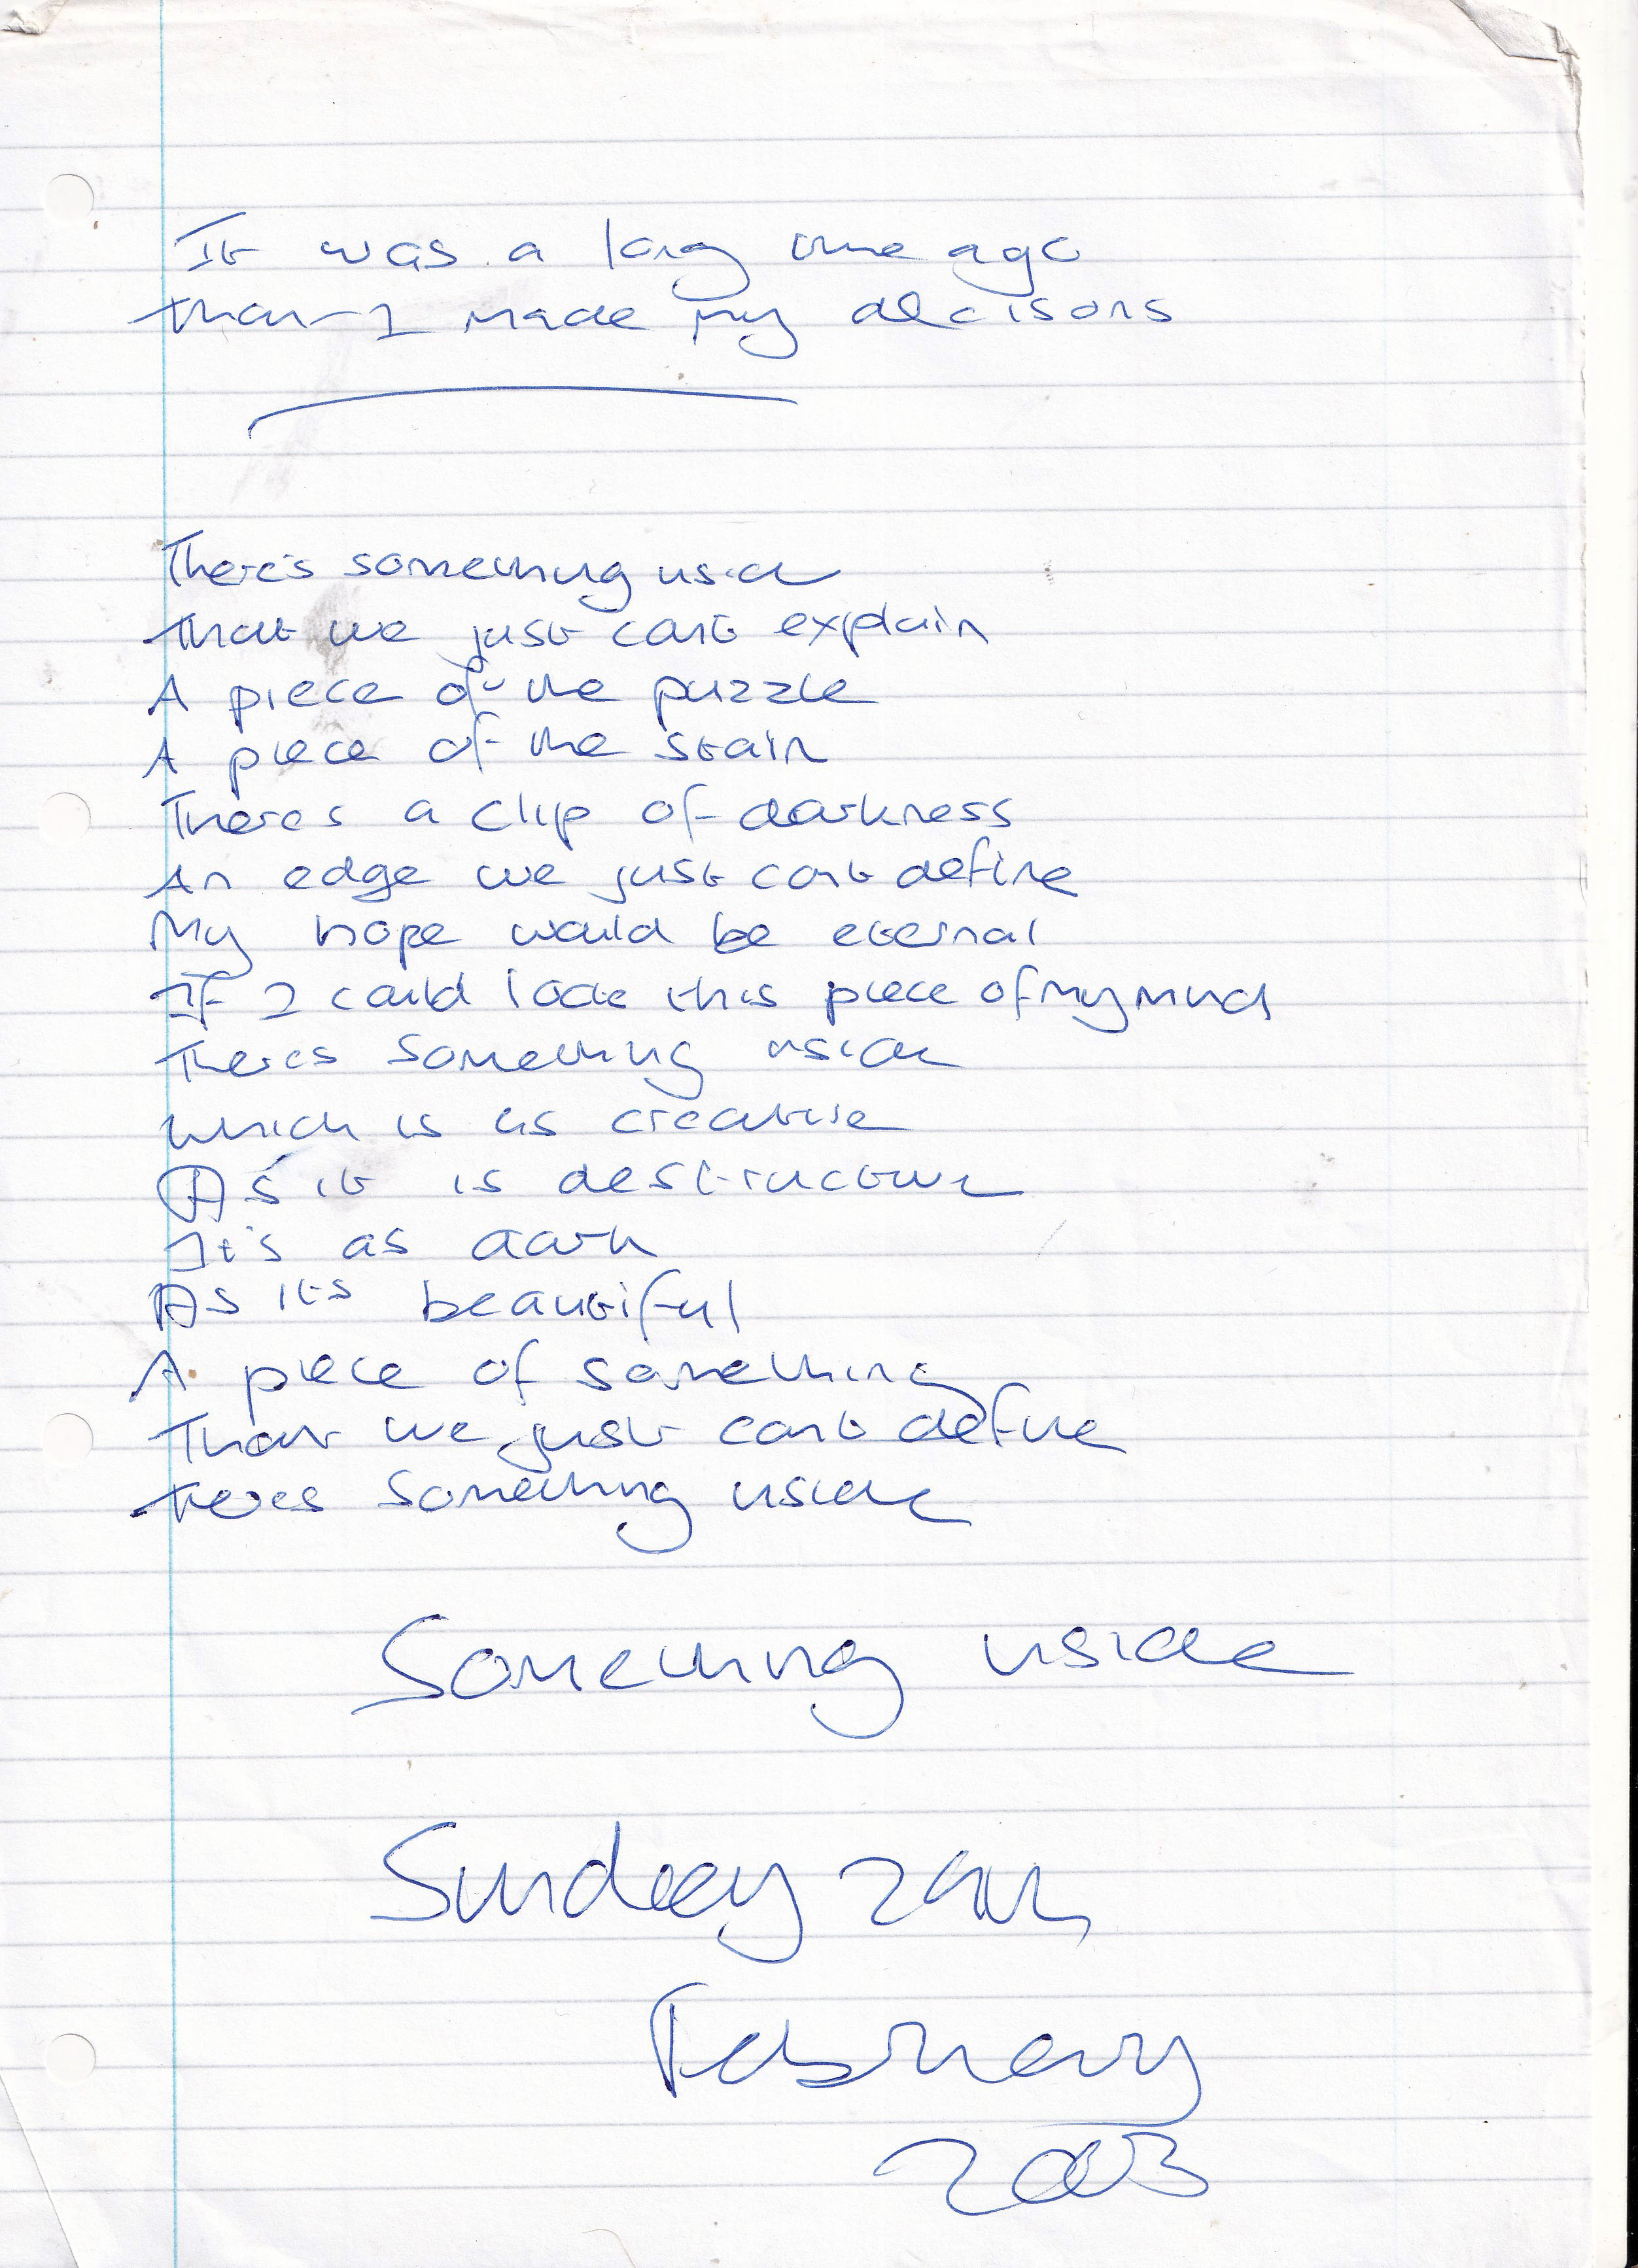 It was a long time ago
that I made my decisons
There's something inside
that we just cant explain
A piece of the puzzle
A piece of the stain
Theres a clip of darkness
An edge we just cant define
My hope would be eternal
If I could this piece of my mind
Theres something inside
which is as creative
As it is destructive
It's as dark
As its beautiful
A piece of something
That we just cant define
Theres something inside
Something inside
Sunday
February
2003